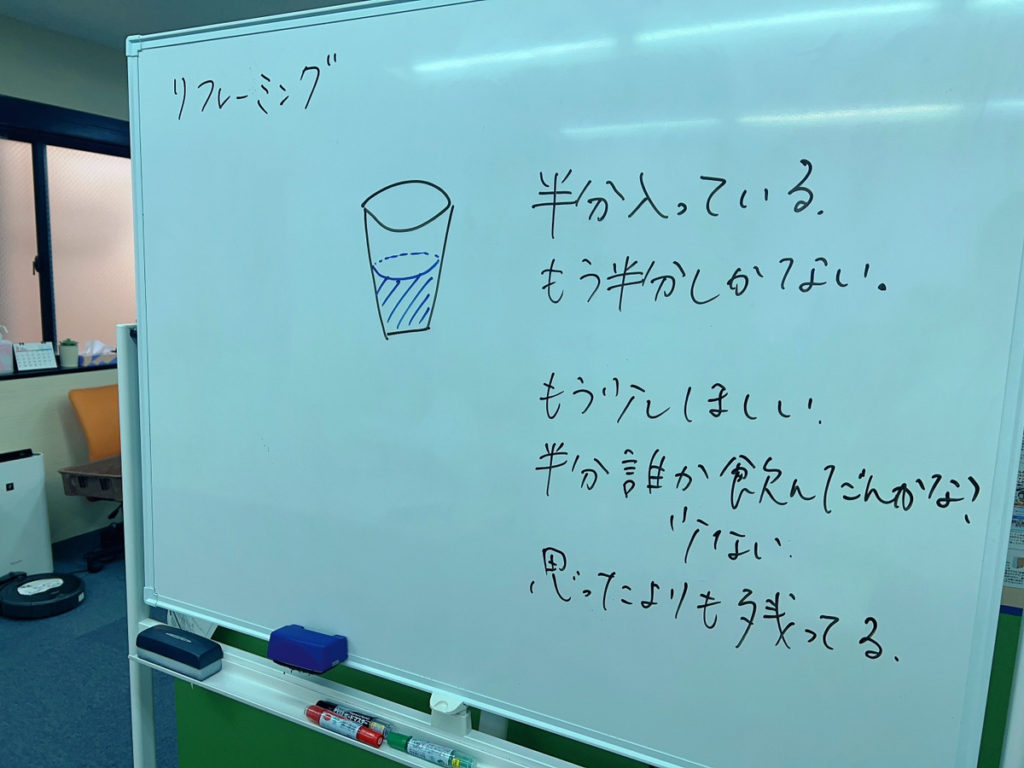 リフレーミング
半分入っている.
もう半分しかない.
もう少しほしい.
半分誰か飲んだんかな?
少ない.
思ったよりも残ってる.